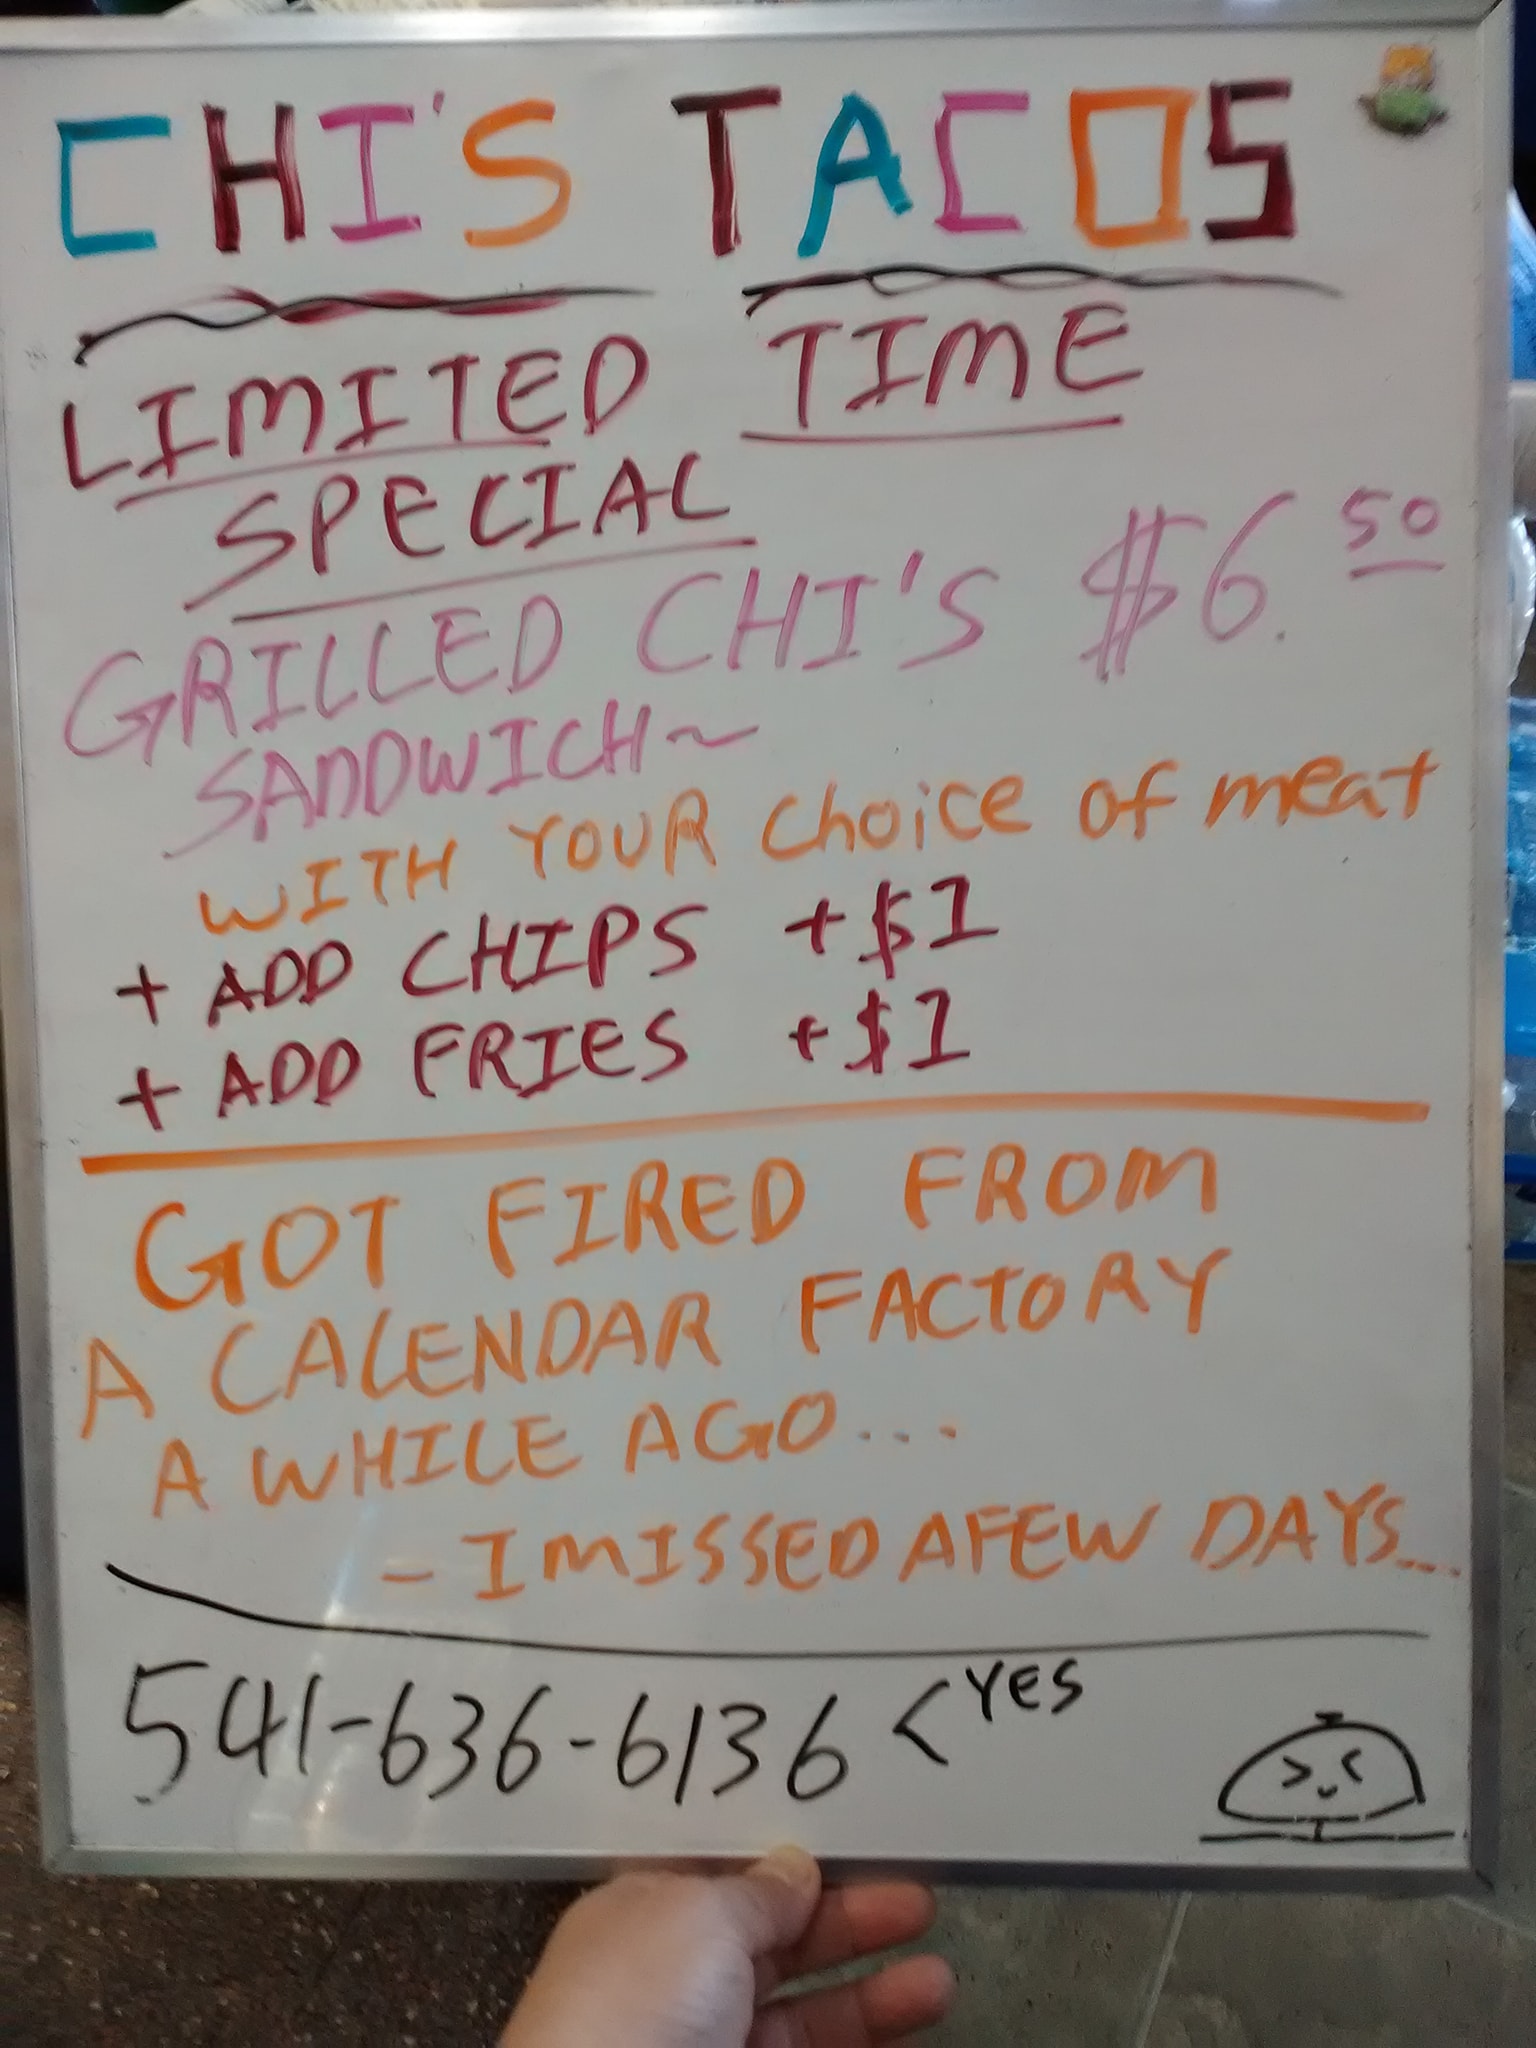 CHI'S TACOS
LIMITED TIME
SPECIAL
GRILLED CHI'S $6.50
SANDWICH~
WITH YOUR choice of meat
+ ADD CHIPS +$1
+ ADD FRIES +$1
GOT FIRED FROM
A CALENDAR FACTORY
A WHILE AGO...
- I MISSED A FEW DAYS....
541-636-6136 < YES